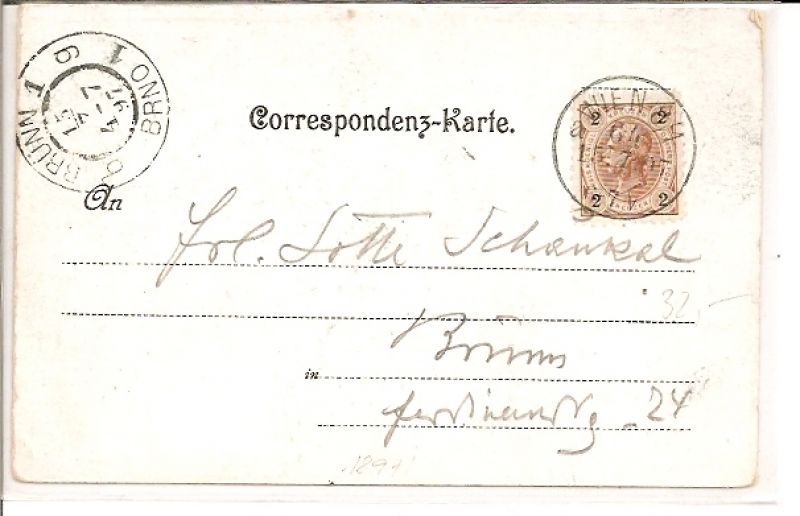 BRÜNN 1 BRNO 1
6
4 7 97
WIEN
2 2
2 2
Correspondenz-Karte.
An
Frl. Lotte Schaukal
32.-
Brünn
in
Ferdinandsg. 24